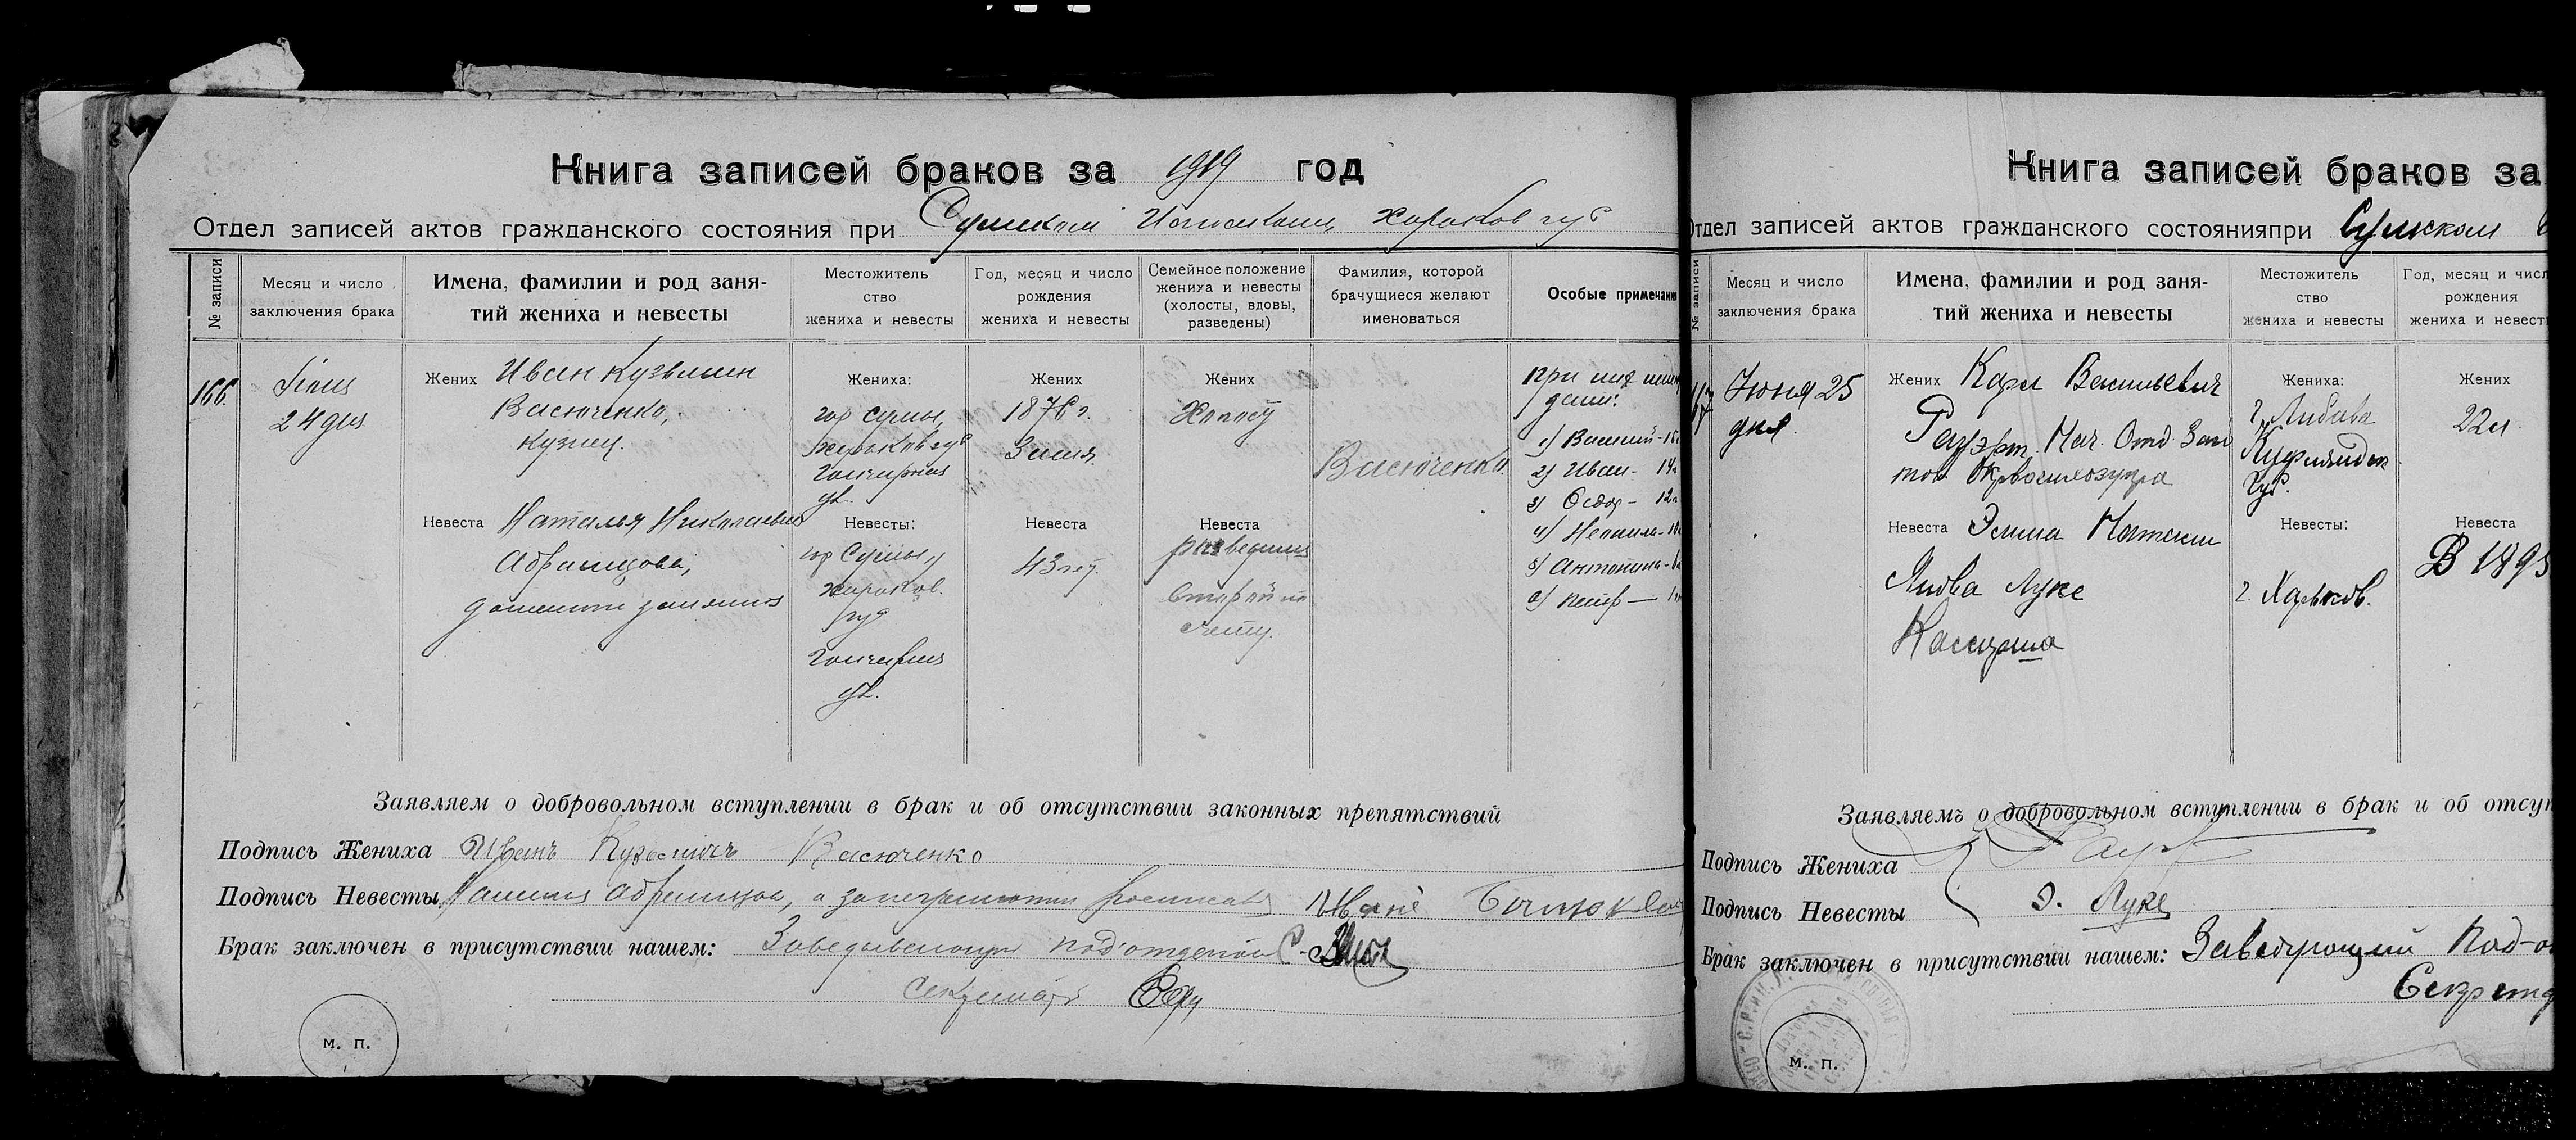 Книга записей браков за 1919 год
Отдел записей актов гражданского состояния при Сумском Исполкоми Харьков губ
№ записи
Месяц и число заключения брака
Имена, фамилии и род заня-
тий жениха и невесты
Местожитель
ство
жениха и невесты
Год, месяц и число
рождения
жениха и невесты
Семейное положение
жениха и невесты
(холосты, вдовы,
разведены)
Фамилия, которой
брачущиеся желают
именоваться
Особые примечани
166.
24 дня
Жених Иван Кузьмин
Васюченко,
кузнец.
Невеста Наталья Николаевна
Абрамцова,
Жениха:
гор Сумы,
Харьков губ
Гончарная
ул.
Невесты:
гор Сумы,
Харьков.
губ
Гончарная
ул.
Жених
1876 г.
Невеста
43 лет.
Жених
Холост
Невеста
разведенная
Второй по
счету.
Васюченко
При них
дети:
1) Василий - 15
2) Иван - 14
3) Федор - 12
4)
5) Антонина -
6) Петр -
Заявляем о добровольном вступлении в брак и об отсутствии законных препятствий
Подпись Жениха Иванъ Кузьмичъ Васюченко
Подпись Невесты Абрамцова, а за неграмотную
Брак заключен в присутствии нашем: Заведывающий подотделом С.
Секретарь
м. п.
Книга записей браков за
Отдел записей актов гражданского состоянияпри Сумском
№ записи
Месяц и число
заключения брака
Имена, фамилии и род заня-
тий жениха и невесты
Местожитель
ство
жениха и невесты
Год, месяц и числ
рождения
жениха и невест
Июня 25
дня
Жених Карл Васильевич
Нач. Отд. Заг
Невеста Эмма
Луке
Жениха:
г. Либава
Курляндск
Губ.
Невесты:
г. Харьков.
Жених
22 л
Невеста
В 1895
Заявляемъ о добровольном вступлении в брак и об отсут
Подпись Жениха
Подпись Невесты Э. Луке
Брак заключен в присутствии нашем: Заведующий Под-о
Секрета
м. п.